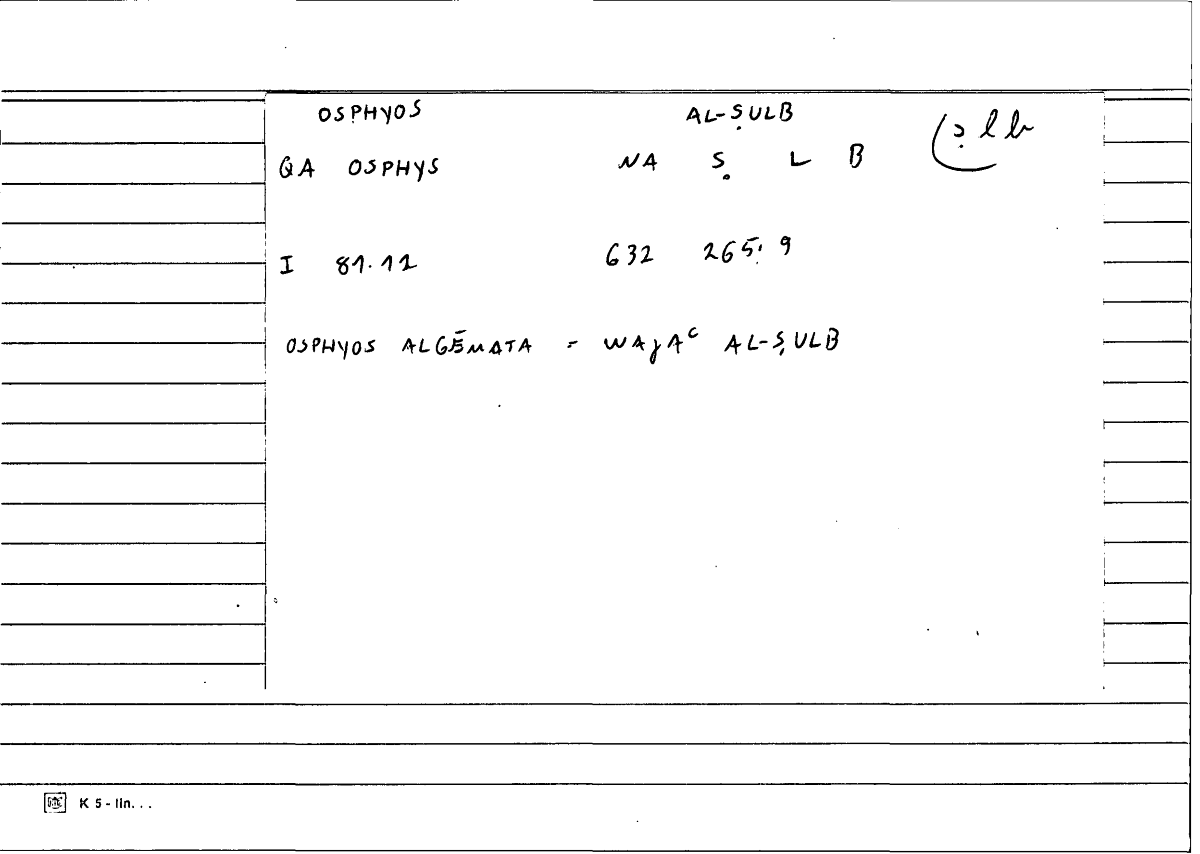 OSPHYOS AL-ṢULB
ṣlb
QA OSPHYS NA Ṣ L B
I 81.11 632 265.9
OSPHYOS ALGĒMATA = WAJAᶜ AL-ṢULB
K 5 - lin. . .